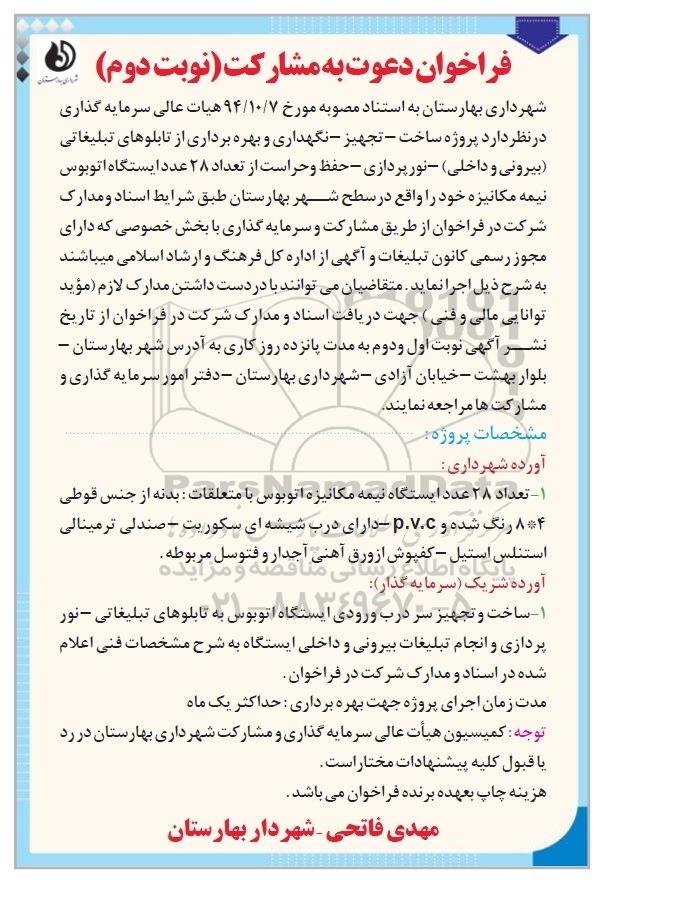 شهرداری بهارستان
فراخوان دعوت به مشارکت (نوبت دوم)
شهرداری بهارستان به استناد مصوبه مورخ ۹۴/۱۰/۷ هیات عالی سرمایه گذاری
درنظر دارد پروژه ساخت – تجهیز – نگهداری و بهره برداری از تابلوهای تبلیغاتی
(بیرونی و داخلی) – نورپردازی – حفظ وحراست از تعداد ۲۸ عدد ایستگاه اتوبوس
نیمه مکانیزه خود را واقع درسطح شهر بهارستان طبق شرایط اسناد ومدارک
شرکت در فراخوان از طریق مشارکت و سرمایه گذاری با بخش خصوصی که دارای
مجوز رسمی کانون تبلیغات و آگهی از اداره کل فرهنگ و ارشاد اسلامی میباشند
به شرح ذیل اجرا نماید. متقاضیان می توانند با دردست داشتن مدارک لازم (مؤید
توانایی مالی و فنی ) جهت دریافت اسناد و مدارک شرکت در فراخوان از تاریخ
نشر آگهی نوبت اول ودوم به مدت پانزده روز کاری به آدرس شهر بهارستان –
بلوار بهشت – خیابان آزادی – شهرداری بهارستان – دفتر امور سرمایه گذاری و
مشارکت ها مراجعه نمایند.
مشخصات پروژه :
آورده شهرداری :
۱- تعداد ۲۸ عدد ایستگاه نیمه مکانیزه اتوبوس با متعلقات : بدنه از جنس قوطی
۴*۸ رنگ شده و p.v.c – دارای درب شیشه ای سکوریت – صندلی ترمینالی
استنلس استیل – کفپوش ازورق آهنی آجدار و فتوسل مربوطه .
آورده شریک (سرمایه گذار):
۱- ساخت و تجهیز سر درب ورودی ایستگاه اتوبوس به تابلوهای تبلیغاتی – نور
پردازی و انجام تبلیغات بیرونی و داخلی ایستگاه به شرح مشخصات فنی اعلام
شده در اسناد و مدارک شرکت در فراخوان .
مدت زمان اجرای پروژه جهت بهره برداری : حداکثر یک ماه
توجه : کمیسیون هیأت عالی سرمایه گذاری و مشارکت شهرداری بهارستان در رد
یا قبول کلیه پیشنهادات مختار است .
هزینه چاپ بعهده برنده فراخوان می باشد .
مهدی فاتحی - شهردار بهارستان
ParsNamadData
پایگاه اطلاع رسانی مناقصه و مزایده
۰۲۱-۸۸۳۴۹۶۷۰-۵